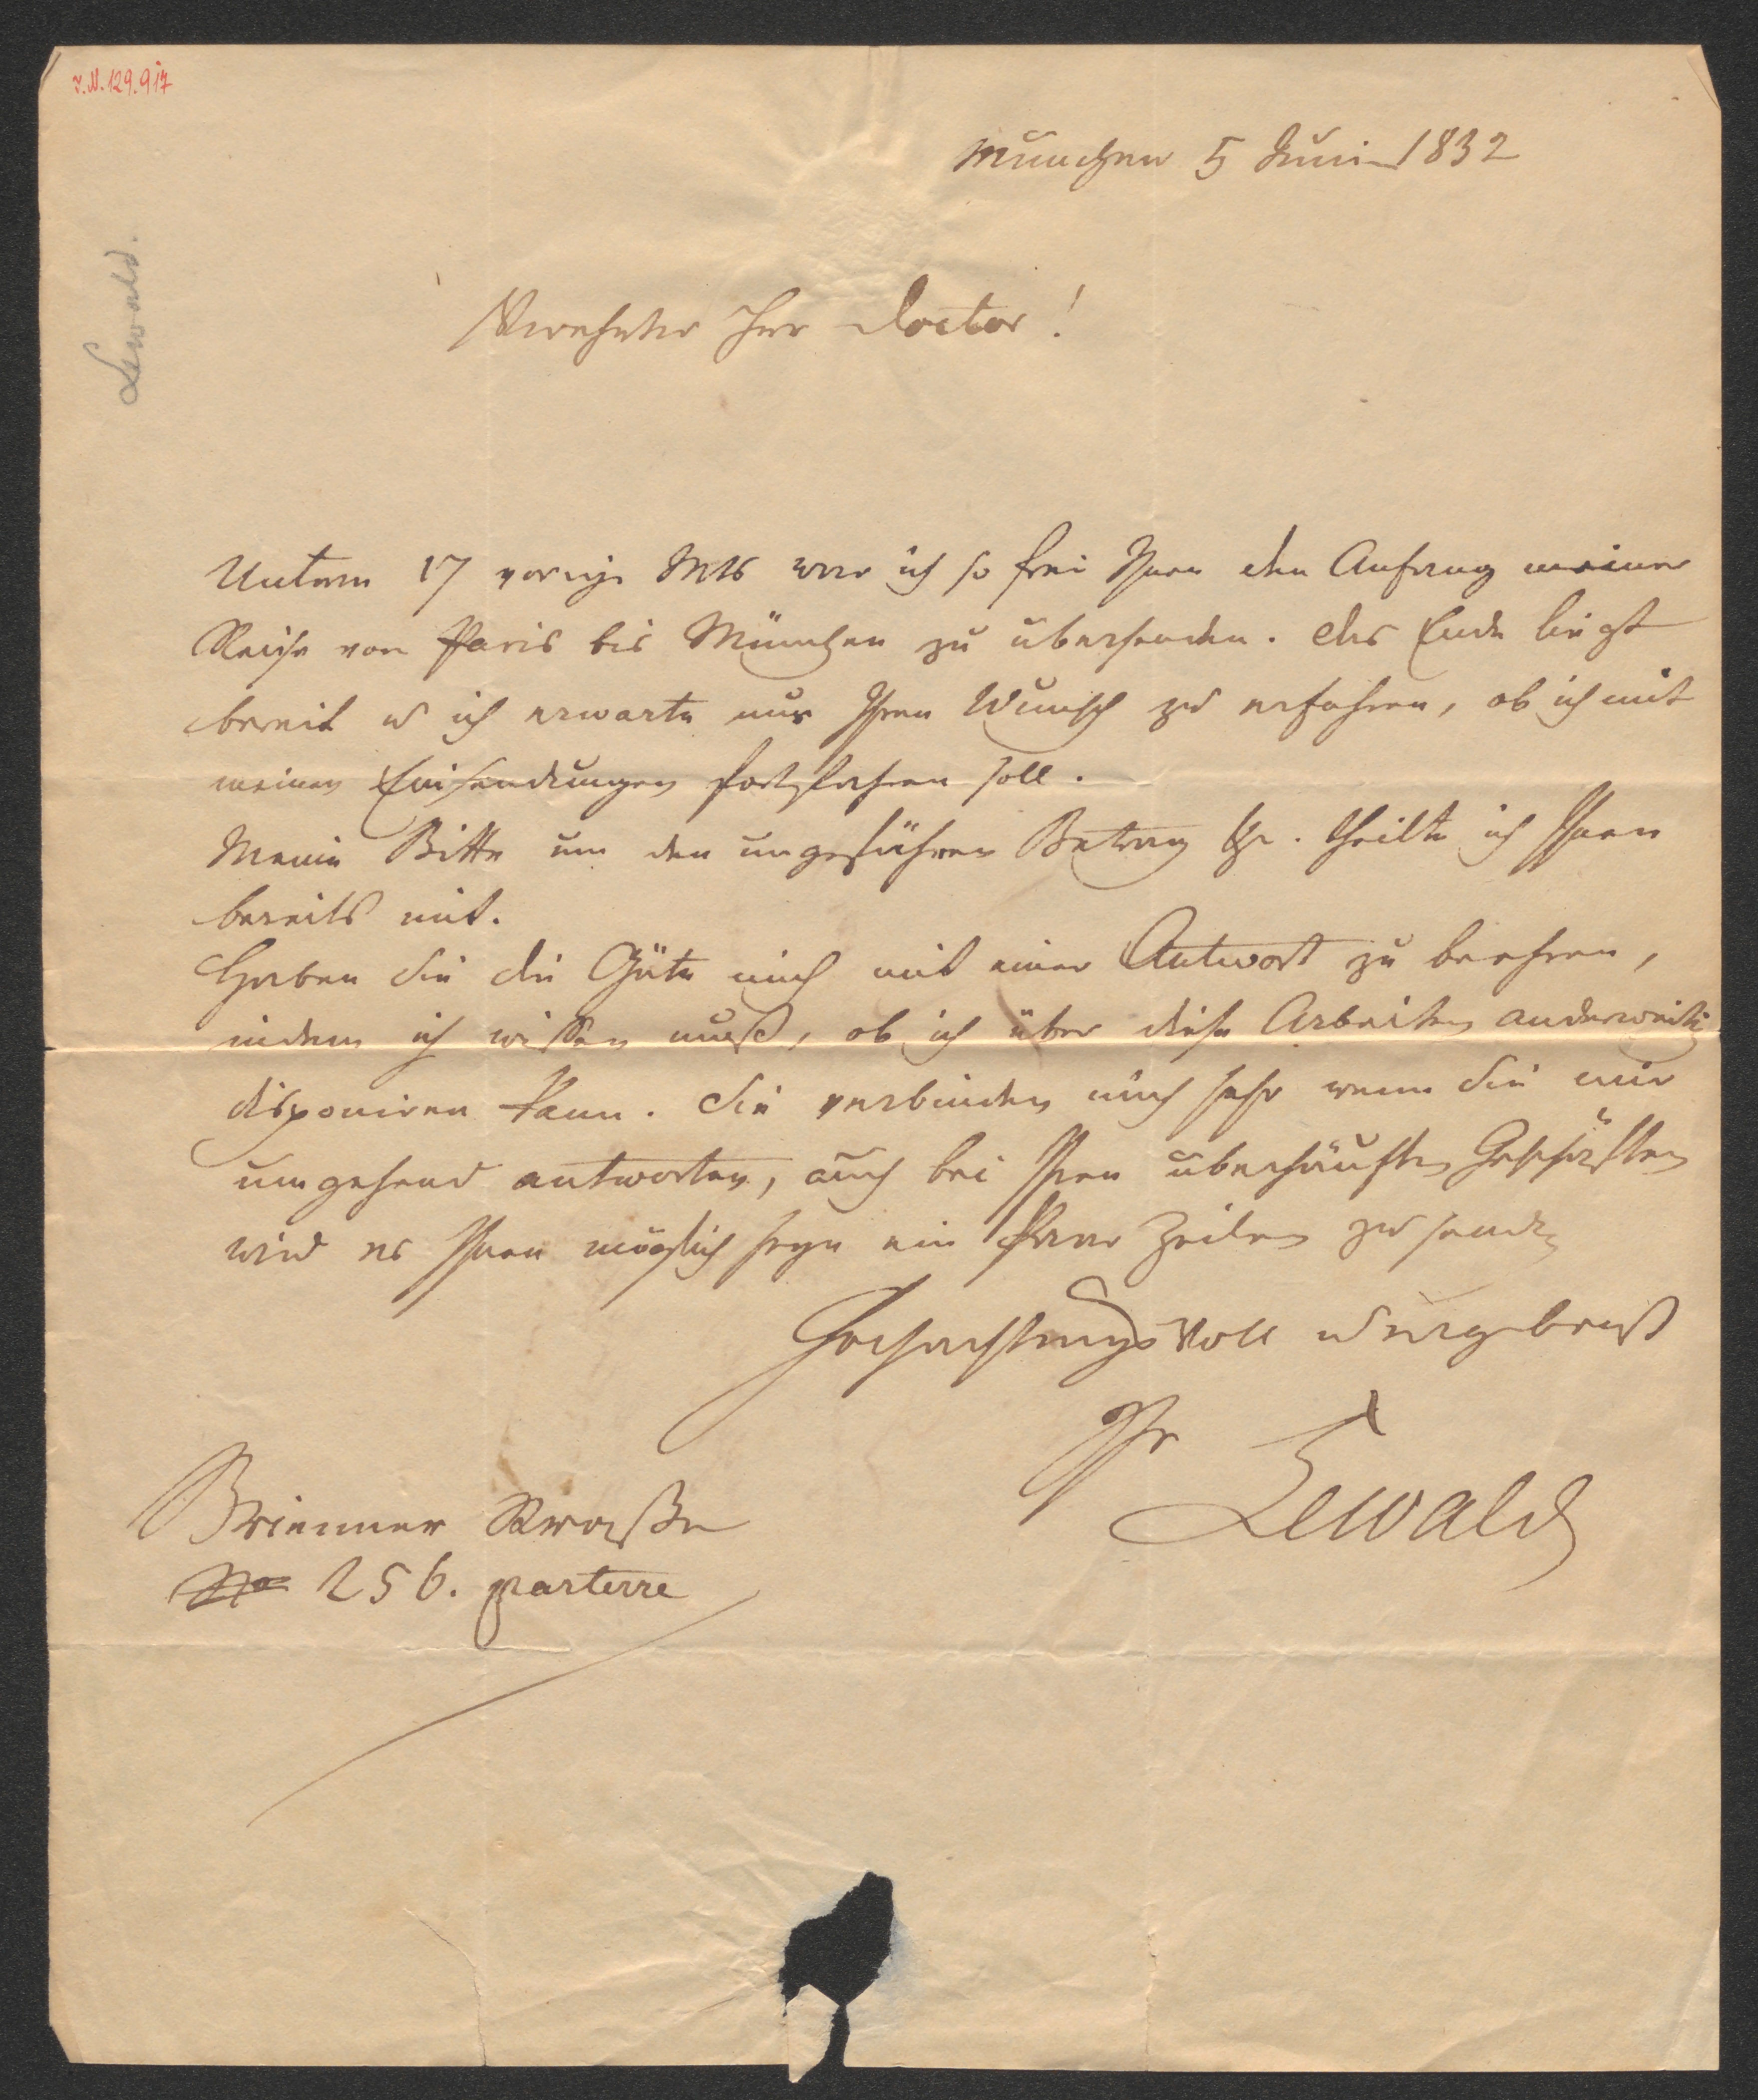 I.N. 129.917
Lewald.
München 5 Juni 1832
Verehrter Herr Doctor!
Unterm 17 vorig. Mts war ich so frei Ihnen den Anfang meiner
Reise von Paris bis München zu übersenden. Das Ende liegt
bereit u ich erwarte nur Ihren Wunsch zu erfahren, ob ich mit
meinen Einsendungen fortfahren soll.
Meine Bitte um den ungefähren Betrag theilte ich Ihnen
bereits mit.
Haben Sie die Güte mich mit einer Antwort zu beehren,
indem ich wissen muß, ob ich über diese Arbeiten anderweitig
disponiren kann. Sie verbinden mich sehr wenn Sie mir
umgehend antworten, auch bei Ihren überhäuften Geschäften
wird es Ihnen möglich seyn ein Paar Zeilen zu senden
Hochachtungsvoll u ergebenst
Ihr
Lewald
Brienner Straße
No 256. parterre